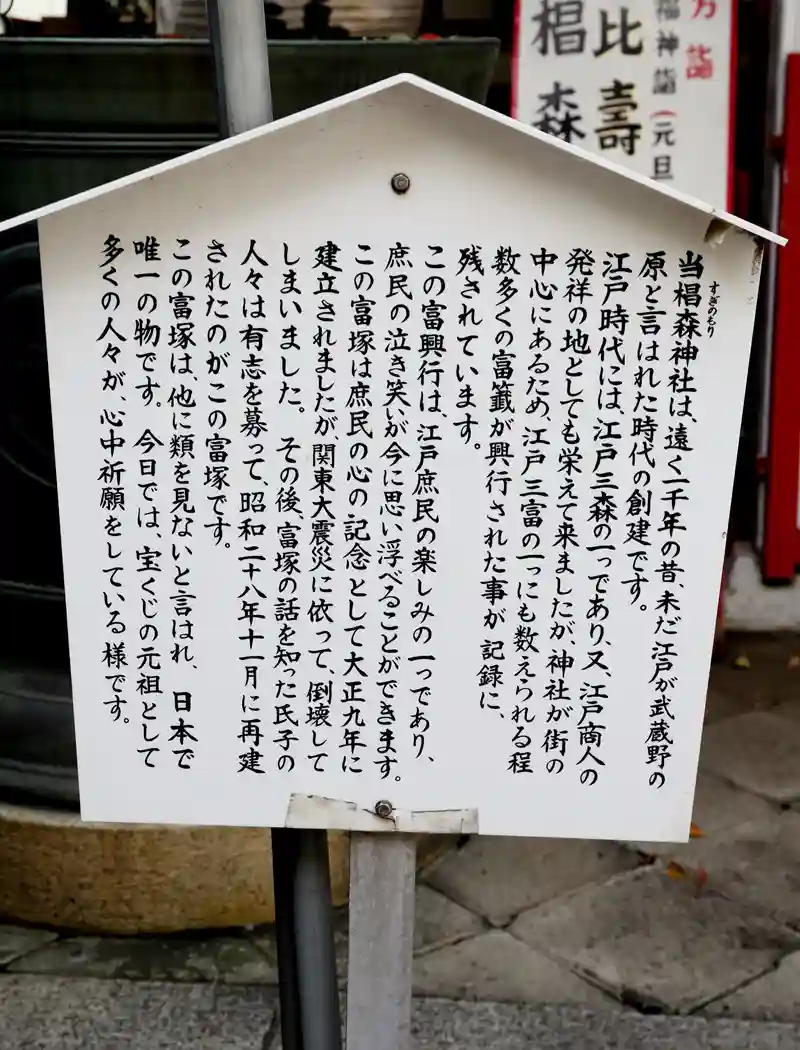 方詣
福神詣（元旦
比壽
椙森
すぎのもり
当椙森神社は、遠く一千年の昔、未だ江戸が武蔵野の
原と言はれた時代の創建です。
江戸時代には、江戸三森の一つであり、又、江戸商人の
発祥の地としても栄えて来ましたが、神社が街の
中心にあるため、江戸三富の一つにも数えられる程
数多くの富籤が興行された事が記録に、
残されています。
この富興行は、江戸庶民の楽しみの一つであり、
庶民の泣き笑いが今に思い浮べることができます。
この富塚は庶民の心の記念として大正九年に
建立されましたが、関東大震災に依って、倒壊して
しまいました。その後、富塚の話を知った氏子の
人々は有志を募って、昭和二十八年十一月に再建
されたのがこの富塚です。
この富塚は、他に類を見ないと言はれ、日本で
唯一の物です。今日では、宝くじの元祖として
多くの人々が、心中祈願をしている様です。